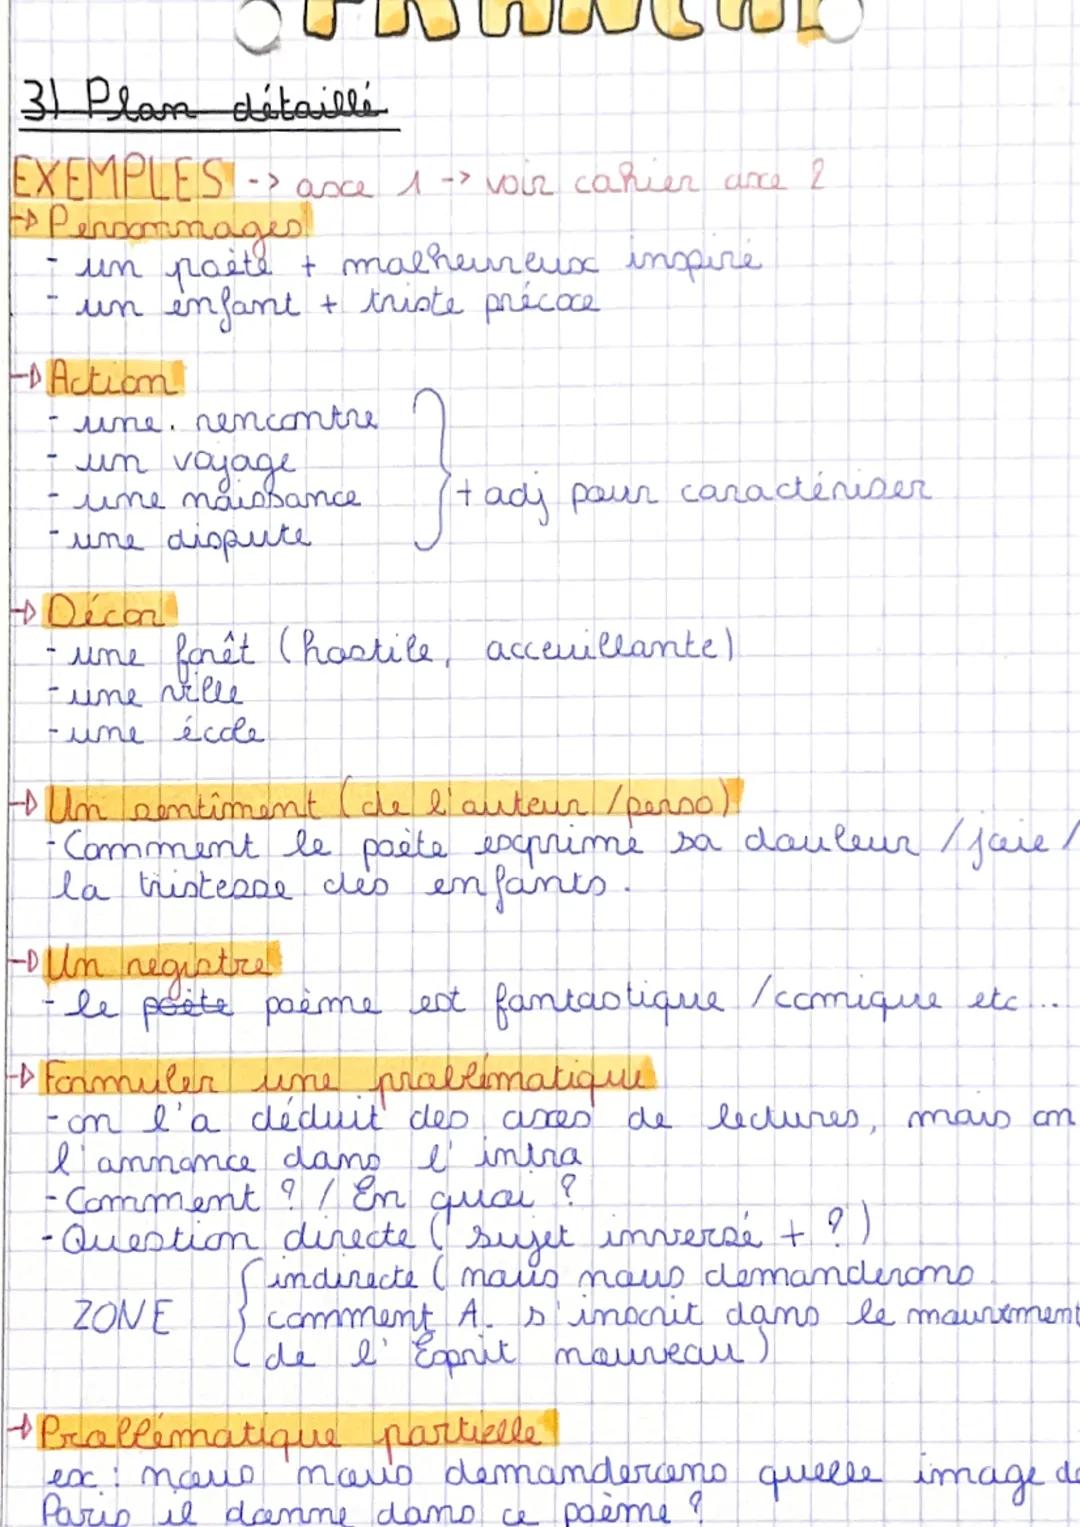 FRANÇAI
3) Plan détaillé
EXEMPLES -> axe 1 -> voir cahier axe 2
-> Personnages
- un poète + malheureux inspiré
- un enfant + triste précoce
-> Action
- une rencontre
- un voyage
- une naissance } + adj pour caractériser
- une dispute
-> Décor
- une forêt (hostile, acceuillante)
- une ville
- une école
-> Un sentiment (de l'auteur / perso)
- Comment le poète exprime sa douleur / joie /
la tristesse des enfants.
-> Un registre
- le poète poème est fantastique / comique etc...
-> Formuler une problématique
- on l'a déduit des axes de lectures, mais on
l'annonce dans l'intra
- Comment ? / En quoi ?
- Question directe (sujet inversé + ?)
indirecte (nous nous demanderons
ZONE { comment A. s'inscrit dans le mouvement
de l'Esprit nouveau)
-> Problématique partielle
ex : nous nous demanderons quelle image de
Paris il donne dans ce poème ?